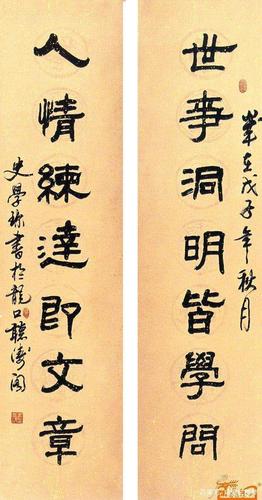 世事洞明皆學問
歲在戊子年秋月
人情練達即文章
史學珍書於龍口聽濤閣